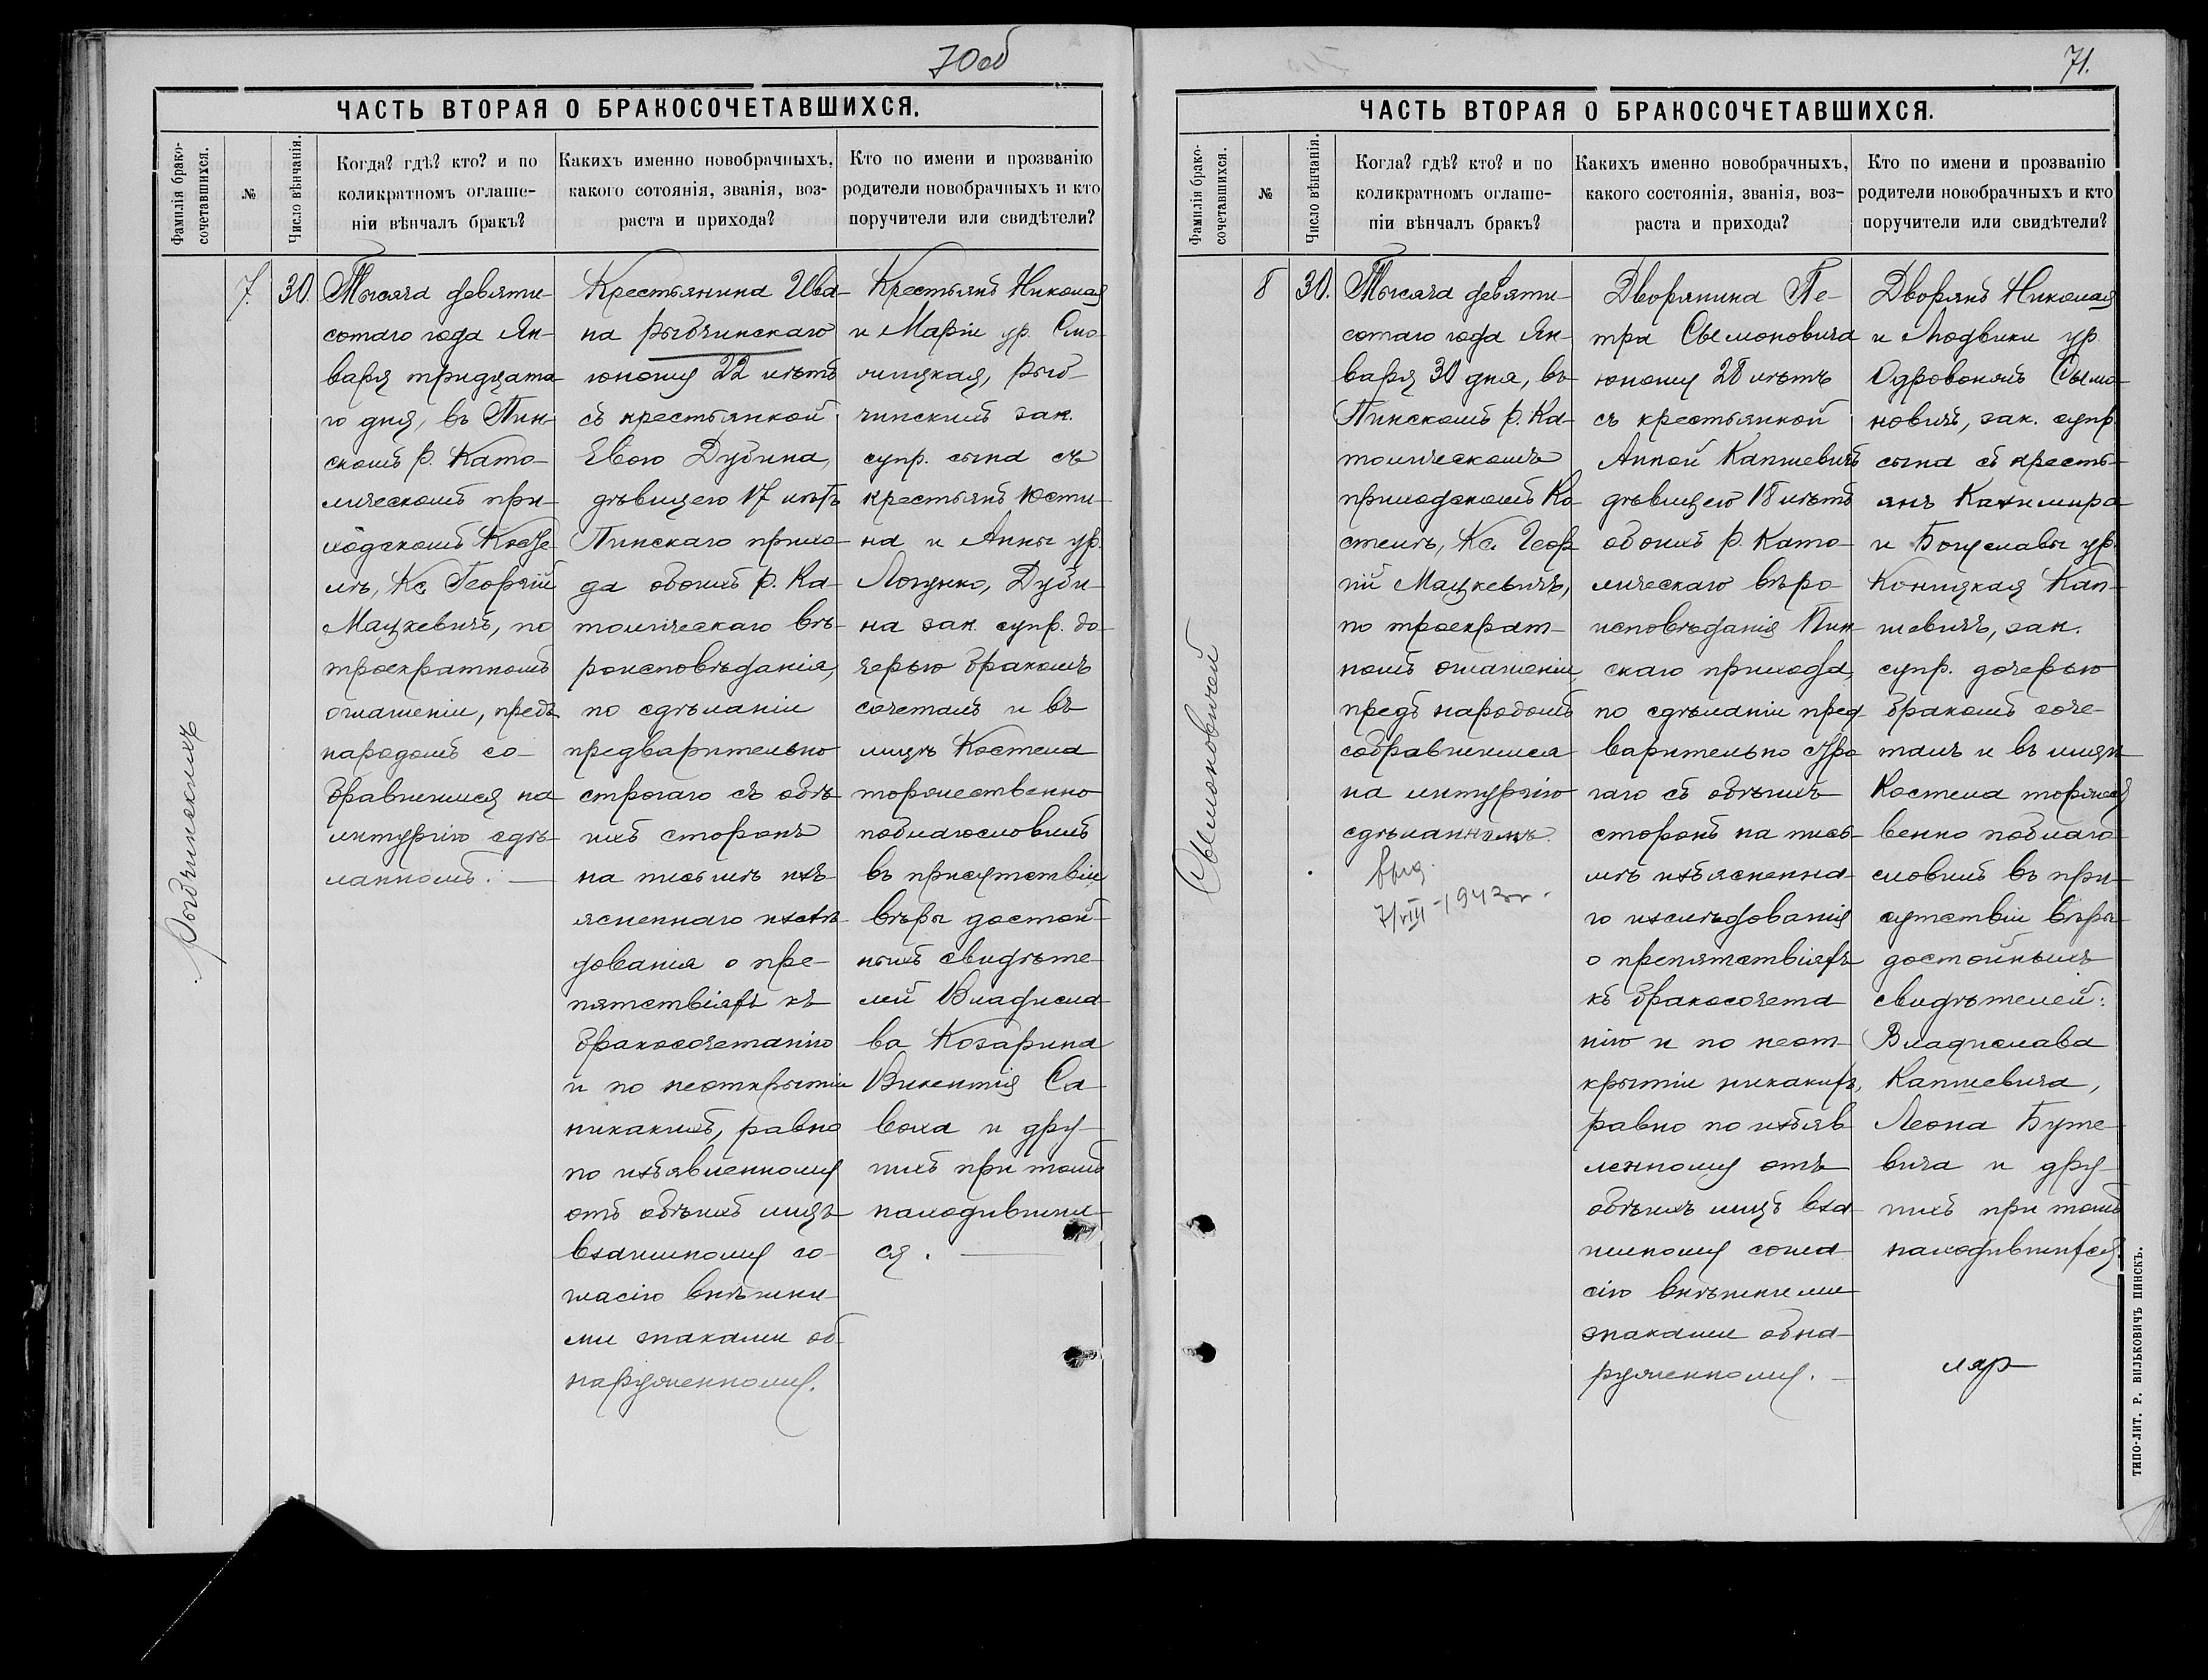 70об
ЧАСТЬ ВТОРАЯ О БРАКОСОЧЕТАВШИХСЯ.
Фамилія брако-
сочетавшихся.
№
Число вѣнчанія.
Когда? гдѣ? кто? и по
коликратномъ оглаше-
ніи вѣнчалъ бракъ?
Какихъ именно новобрачныхъ,
какого сотоянія, званія, воз-
раста и прихода?
Кто по имени и прозванію
родители новобрачныхъ и кто
поручители или свидѣтели?
Рыбчинскихъ
7.
30.
Тысяча девяти-
сотаго года Ян-
варя тридцата-
го дня, въ Пин-
скомъ р. Като-
лическомъ при-
ходскомъ Косте-
лѣ, Кс. Георгій
Мацкевичъ, по
троекратномъ
оглашеніи, предъ
народомъ со-
бравшемся на
литургію сдѣ-
ланномъ.
Крестьянина Ива-
на Рыбчинскаго
юношу 22 лѣтъ
съ крестьянкой
Евою Дубина,
дѣвицею 17 лѣтъ
Пинскаго прихо-
да обоихъ р. Ка-
толическаго вѣ-
роисповѣданія,
по сдѣланіи
предварительно
строгаго съ обѣ-
ихъ сторонъ
на письмѣ изъ
ясненнаго изслѣ
дованія о пре-
пятствіяхъ къ
бракосочетанію
и по неоткрытіи
никакихъ, равно
по изъявленному
отъ обѣихъ лицъ
взаимному со-
гласію внѣшни-
ми знаками об-
наруженному.
Крестьянъ Николая
и Маріи ур. Смо-
лицкая, Рыб-
чинскихъ зак.
супр. сына съ
крестьянъ Юсти-
на и Анны ур.
Логунко, Дуби-
на зак. супр. до-
черью бракомъ
сочеталъ и въ
лицѣ Костела
торжественно
поблагословилъ
въ присутствіи
вѣры достой-
ныхъ свидѣте-
лей Владисла-
ва Козарина
Викентія Са-
воха и дру-
гихъ при томъ
находивших-
ся.
71.
ЧАСТЬ ВТОРАЯ О БРАКОСОЧЕТАВШИХСЯ.
Фамилія брако-
сочетавшихся.
№
Число вѣнчанія.
Когда? гдѣ? кто? и по
коликратномъ оглаше-
ніи вѣнчалъ бракъ?
Какихъ именно новобрачныхъ,
какого состоянія, званія, воз-
раста и прихода?
Кто по имени и прозванію
родители новобрачныхъ и кто
поручители или свидѣтели?
Сымоновичей
8
30.
Тысяча девяти-
сотаго года Ян-
варя 30 дня, въ
Пинскомъ р. Ка-
толическомъ
приходскомъ Ко-
стелѣ, Кс. Геор-
гій Мацкевичъ,
по троекрат-
номъ оглашеніи,
предъ народомъ
собравшемся
на литургію
сдѣланномъ.
7/VIII-1942 г.
Дворянина Пе-
тра Сымоновича
юношу 28 лѣтъ
съ крестьянкой
Анной Капшевичъ
дѣвицею 18 лѣтъ
обоихъ р. Като-
лическаго вѣро-
исповѣданія Пин-
скаго прихода,
по сдѣланіи пред-
варительно стро-
гаго съ обѣихъ
сторонъ на пись-
мѣ изъясненна-
го изслѣдованія
о препятствіяхъ
къ бракосочета-
нію и по неот-
крытіи никакихъ,
равно по изъяв-
ленному отъ
обѣихъ лицъ вза-
имному согла-
сію внѣшними
знаками обна-
руженному.
Дворянъ Николая
и Людвики ур.
Одровонжъ Сымо-
новичъ, зак. супр.
сына съ кресть-
янъ Казимира
и Богуславы ур.
Коницкая Кап-
шевичъ, зак.
супр. дочерью
бракомъ соче-
талъ и въ лицѣ
Костела торжест
венно поблаго-
словилъ въ при-
сутствіи вѣры
достойныхъ
свидѣтелей:
Владислава
Капшевича,
Леона Буте-
вича и дру-
гихъ при томъ
находившихся.
ТИПО-ЛИТ. Р. ВИЛЬКОВИЧЪ ПИНСКЪ.